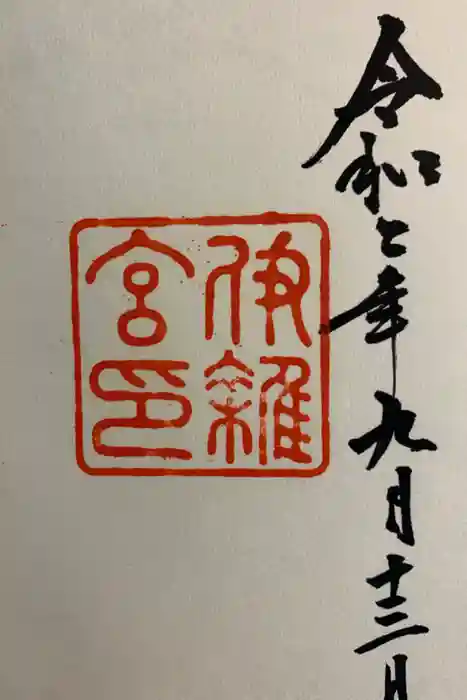 令和二年九月十三日
伊雜
宮印